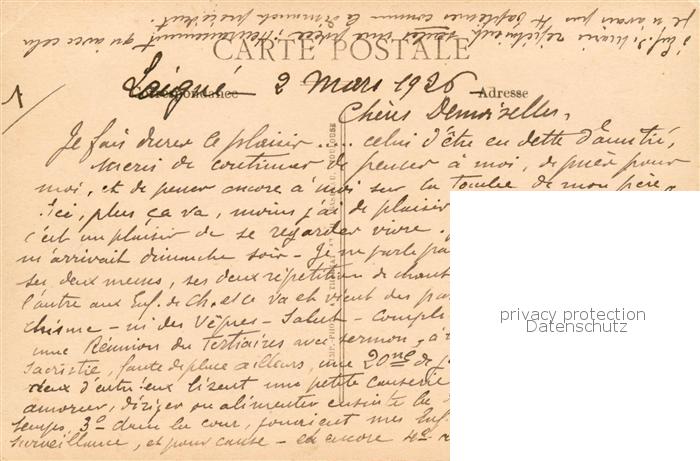 CARTE POSTALE
Correspondance Adresse
1
Laigné 2 Mars 1926
Chères Demoiselles,
Je fais durer le plaisir .... celui d'être en dette d'amitié,
Merci de continuer de penser à moi, de prier pour
moi, et de penser encore à moi sur la tombe de mon père
Ici, plus ça va, moins j'ai de plaisir
c'est un plaisir de se regarder vivre.
m'arrivait dimanche soir - Je ne parle pa
ses deux messes, ses deux répétitions de chant
l'autre aux Enf. de Ch. et ce va et vient des pa
chisme - ni des Vêpres - Salut - Complies
une Réunion du Tertiaires avec sermon, à
sacristie, faute de place ailleurs, une 20ne de j
deux d'entr'eux lisent une petite causerie
amorcer, diriger ou alimenter ensuite la
temps, 3º dans la cour, jouaient mes Enf.
surveillance, et pour cause - et encore 4º
privacy protection
Datenschutz